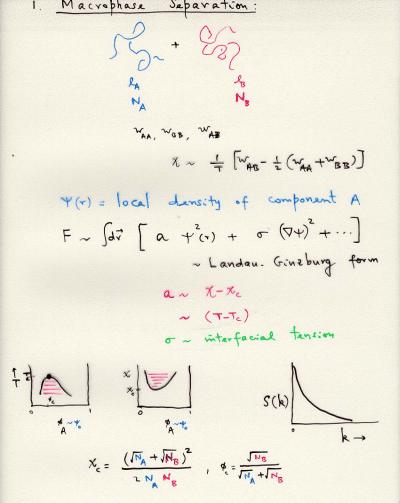 1. Macrophase Separation:
+
l_A l_B
N_A N_B
w_AA, w_BB, w_AB
χ ~ 1/T [w_AB - 1/2 (w_AA + w_BB)]
Ψ(r) = local density of component A
F ~ ∫dr⃗ [ a Ψ²(r) + σ (∇Ψ)² + ⋯ ]
~ Landau-Ginzburg form
a ~ χ - χ_c
~ (T - T_c)
σ ~ interfacial tension
↑ T T_c φ_c 0 1 φ_A ~ Ψ_0
χ χ_c 0 1 φ_A ~ Ψ_0
S(k) 0 k →
χ_c = (√N_A + √N_B)² / 2 N_A N_B , φ_c = √N_B / √N_A + √N_B